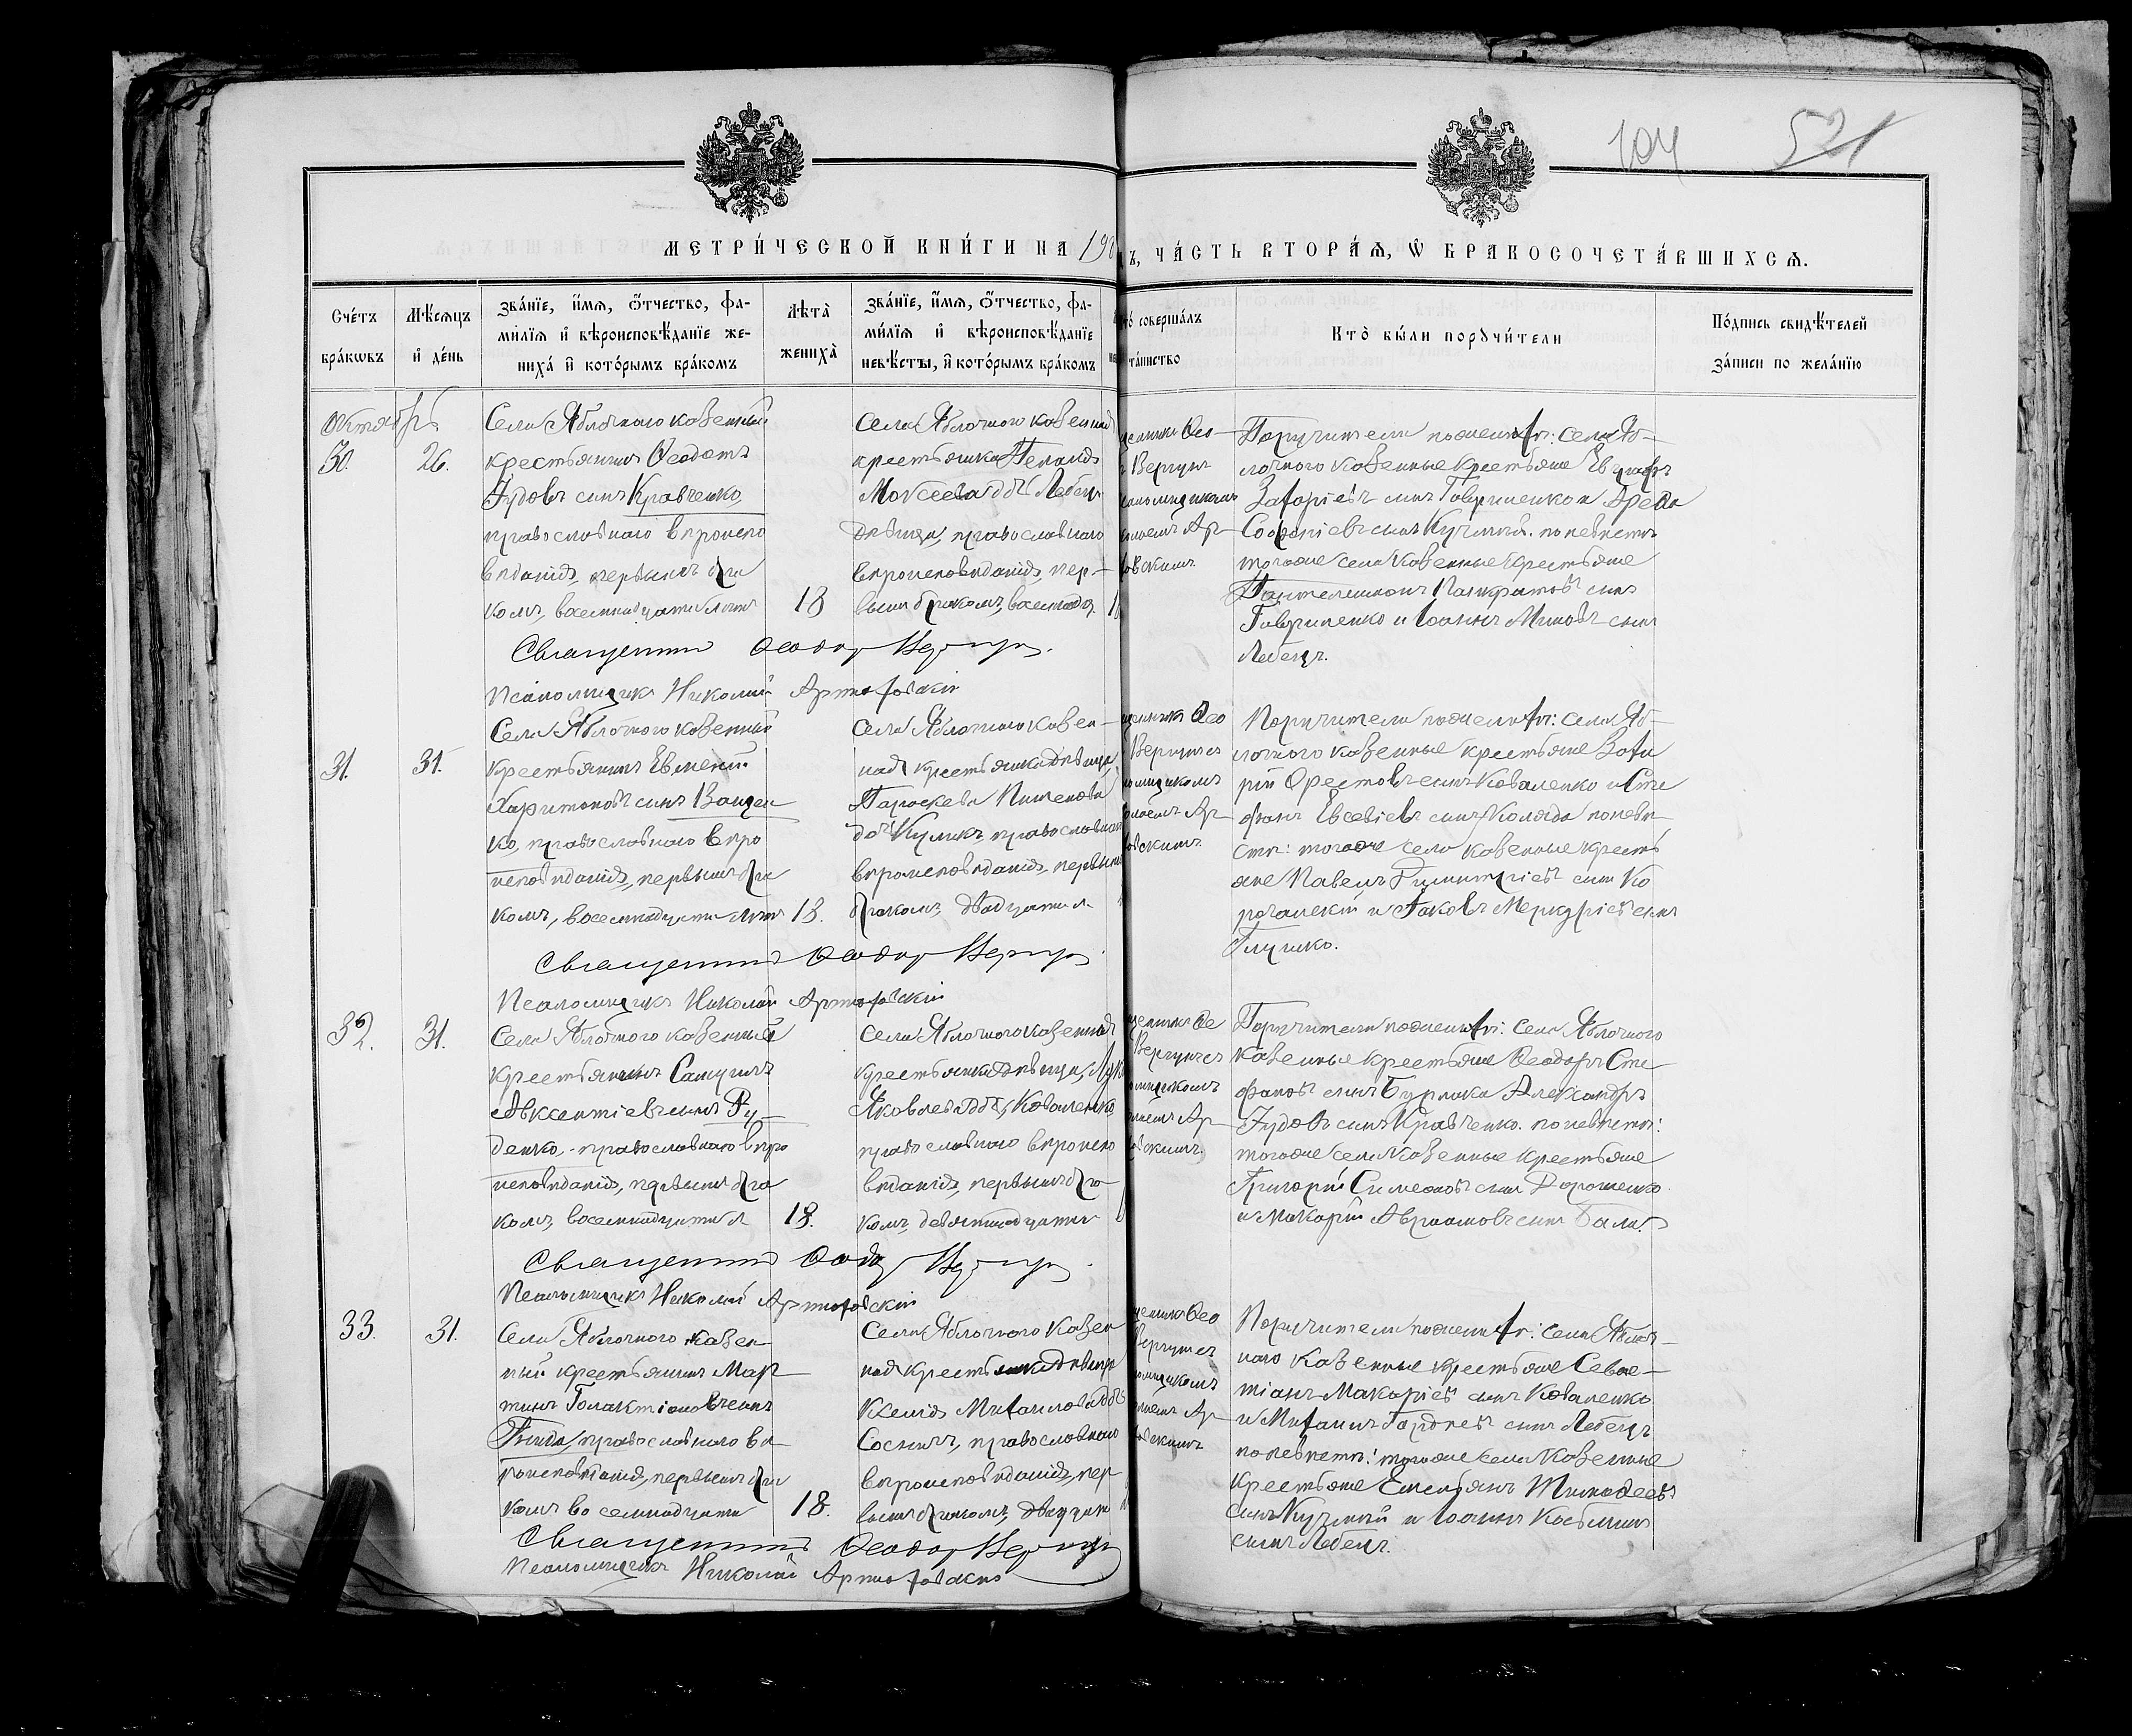 104 521
МЕТРИ́ЧЕСКОЙ КНИ́ГИ НА 190
Ъ, ЧА́СТЬ ВТОРА́Ѧ, Ѡ҆ БРАКОСОЧЕТА́ВШИХСѦ.
Сче́тъ бра́кѡвъ
Мѣ́сѧцъ и҆ де́нь
Зва́нїе, и҆́мѧ, ѻ҆́тчество, фа-
ми́лїѧ и҆ вѣроисповѣ́данїе же-
ниха̀ и҆ кото́рымъ бра́комъ
Лѣ́та̀ жениха̀
Зва́нїе, и҆́мѧ, ѻ҆́тчество, фа-
ми́лїѧ и҆ вѣроисповѣ́данїе
невѣ́сты, и҆ кото́рымъ бра́комъ
то̀ соверша́лъ
та́инство
Кто̀ бы́ли порꙋчи́тели
По́дпись свидѣ́телей
за́писи по жела́нїю
Октябрь
30.
26.
Села Яблочного казенный
крестьянинъ Ѳеодотъ
Іудовъ сынъ Кравченко,
православнаго вѣроиспо
вѣданія, первымъ бра
комъ, восемнадцати лѣтъ
18
Села Яблочного казенная
крестьянка
Моѵсеева доч Лебедь
дѣвица, православнаго
вѣроисповѣданія, пер-
вымъ бракомъ,
Ѳео-
Вергунъ
Ар-
Поручители по женихѣ: села Яб-
лочного казенные крестьяне Евграфъ
Захаріевъ сынъ Гавриленко и
Софроніевъ сынъ Кучмій. по невѣстѣ
тогоже села казенные крестьяне
Пантелеимонъ Панкратовъ сынъ
Гавриленко и Іоаннъ Миновъ сынъ
Лебедь.
Священникъ Ѳеодоръ Вергунъ.
Псаломщикъ Николай Артюховскій
31.
31.
Села Яблочного казенный
крестьянинъ Евменій
Харитоновъ сынъ Ващен
ко, православнаго вѣро
исповѣданія, первымъ бра
комъ, восемнадцати лѣтъ
18.
Села Яблочного казен-
ная крестьянка дѣвица,
Параскева Пименова
доч Куликъ, православнаго
вѣроисповѣданія, первымъ
бракомъ, двадцати л.
Ѳео
Ар-
Поручители по женихѣ: села Яб-
лочного казенные крестьяне Заха
рій Орестовъ сынъ Коваленко и Сте
фанъ Евсевіевъ сынъ Коляда по невѣ
стѣ: тогоже села казенные кресть
яне Павелъ Димитріевъ сынъ Ко
рочанскій и Іаковъ Меркуріевъ сынъ
Глушко.
Священникъ Ѳеодоръ Вергунъ
Псаломщикъ Николай Артюховскій
32.
31.
Села Яблочного казенный
крестьянинъ Самуилъ
Авксентіевъ сынъ Ру-
денко, православнаго вѣро
исповѣданія, первымъ бра
комъ, восемнадцати л
18.
Села Яблочного казенная
крестьянка дѣвица,
Яковлева доч, Коваленко
православнаго вѣроиспо
вѣданія, первымъ бра-
комъ, девятнадцати
Ар-
Поручители по женихѣ: села Яблочного
казенные крестьяне Ѳеодоръ Сте
фановъ сынъ Бурлака Александръ
Іудовъ сынъ Кравченко. по невѣстѣ:
тогоже села казенные крестьяне
Григорій Симеоновъ сынъ Дорошенко
и Макарій Авраамовъ сынъ
Священникъ Ѳеодоръ Вергунъ
Псаломщикъ Николай Артюховскій
33.
31.
Села Яблочного казен
ный крестьянинъ Мар-
тинъ Галактіоновъ сынъ
православнаго вѣ-
роисповѣданія, первымъ бра
комъ восемнадцати
18.
Села Яблочного казен
ная крестьянка дѣвица
Ксенія Михаилова доч
православнаго
вѣроисповѣданія, пер-
вымъ бракомъ, двадцати
Ѳео
Ар-
Поручители по женихѣ: села Яблоч-
наго казенные крестьяне Севас-
тіанъ Макаріевъ сынъ Коваленко
и Михаилъ Гордѣевъ сынъ Лебедь
по невѣстѣ: тогоже села казенные
крестьяне Емельянъ Тимоѳеевъ
сынъ Кучмій и Іоаннъ Косьминъ
сынъ Лебедь.
Священникъ Ѳеодоръ Вергунъ
Псаломщикъ Николай Артюховскій